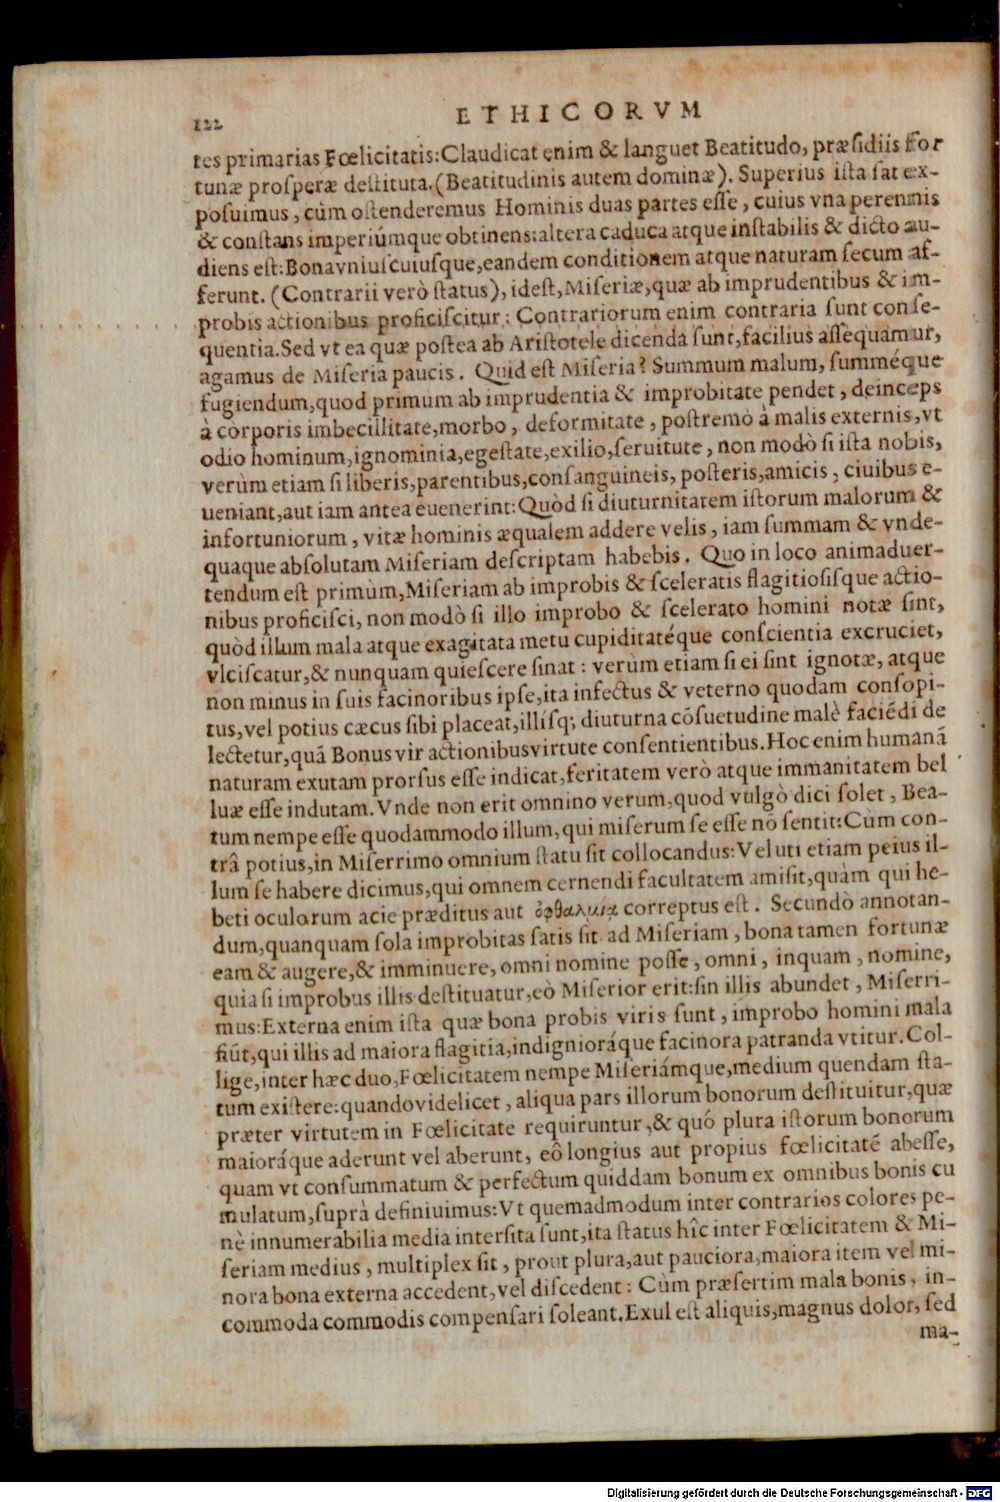 122 ETHICORVM
tes primarias Fœlicitatis: Claudicat enim & languet Beatitudo, præsidiis For
tunæ prosperæ destituta. (Beatitudinis autem dominæ). Superius ista sat ex-
posuimus, cùm ostenderemus Hominis duas partes esse, cuius vna perennis
& constans imperiúmque obtinens: altera caduca atque instabilis & dicto au-
diens est: Bona vniuscuiusque, eandem conditionem atque naturam secum af-
ferunt. (Contrarii verò status), idest, Miseriæ, quæ ab imprudentibus & im-
probis actionibus proficiscitur: Contrariorum enim contraria sunt conse-
quentia. Sed vt ea quæ postea ab Aristotele dicenda sunt, facilius assequamur,
agamus de Miseria paucis. Quid est Miseria? Summum malum, summéque
fugiendum, quod primum ab imprudentia & improbitate pendet, deinceps
à corporis imbecillitate, morbo, deformitate, postremò à malis externis, vt
odio hominum, ignominia, egestate, exilio, seruitute, non modò si ista nobis,
verùm etiam si liberis, parentibus, consanguineis, posteris, amicis, ciuibus e-
ueniant, aut iam antea euenerint: Quòd si diuturnitatem istorum malorum &
infortuniorum, vitæ hominis æqualem addere velis, iam summam & vnde-
quaque absolutam Miseriam descriptam habebis. Quo in loco animaduer-
tendum est primùm, Miseriam ab improbis & sceleratis flagitiosisque actio-
nibus proficisci, non modò si illo improbo & scelerato homini notæ sint,
quòd illum mala atque exagitata metu cupiditatéque conscientia excruciet,
vlciscatur, & nunquam quiescere sinat: verùm etiam si ei sint ignotæ, atque
non minus in suis facinoribus ipse, ita infectus & veterno quodam consopi-
tus, vel potius cæcus sibi placeat, illísq; diuturna cõsuetudine malè faciẽdi de
lectetur, quã Bonus vir actionibus virtute consentientibus. Hoc enim humanã
naturam exutam prorsus esse indicat, feritatem verò atque immanitatem bel
luæ esse indutam. Vnde non erit omnino verum, quod vulgò dici solet, Bea-
tum nempe esse quodammodo illum, qui miserum se esse nõ sentit: Cùm con-
trâ potius, in Miserrimo omnium statu sit collocandus: Veluti etiam peius il-
lum se habere dicimus, qui omnem cernendi facultatem amisit, quàm qui he-
beti oculorum acie præditus aut ὀφθαλμίᾳ correptus est. Secundò annotan-
dum, quanquam sola improbitas satis sit ad Miseriam, bona tamen fortunæ
eam & augere, & imminuere, omni nomine posse, omni, inquam, nomine,
quia si improbus illis destituatur, eò Miserior erit: sin illis abundet, Miserri-
mus: Externa enim ista quæ bona probis viris sunt, improbo homini mala
fiũt, qui illis ad maiora flagitia, indignioráque facinora patranda vtitur. Col-
lige, inter hæc duo, Fœlicitatem nempe Miseriámque, medium quendam sta-
tum existere: quando videlicet, aliqua pars illorum bonorum destituitur, quæ
præter virtutem in Fœlicitate requiruntur, & quó plura istorum bonorum
maioráque aderunt vel aberunt, eô longius aut propius fœlicitatẽ abesse,
quam vt consummatum & perfectum quiddam bonum ex omnibus bonis cu
mulatum, suprà definiuimus: Vt quemadmodum inter contrarios colores pe-
nè innumerabilia media intersita sunt, ita status hîc inter Fœlicitatem & Mi-
seriam medius, multiplex sit, prout plura, aut pauciora, maiora item vel mi-
nora bona externa accedent, vel discedent: Cùm præsertim mala bonis, in-
commoda commodis compensari soleant. Exul est aliquis, magnus dolor, sed
ma-
Digitalisierung gefördert durch die Deutsche Forschungsgemeinschaft - DFG